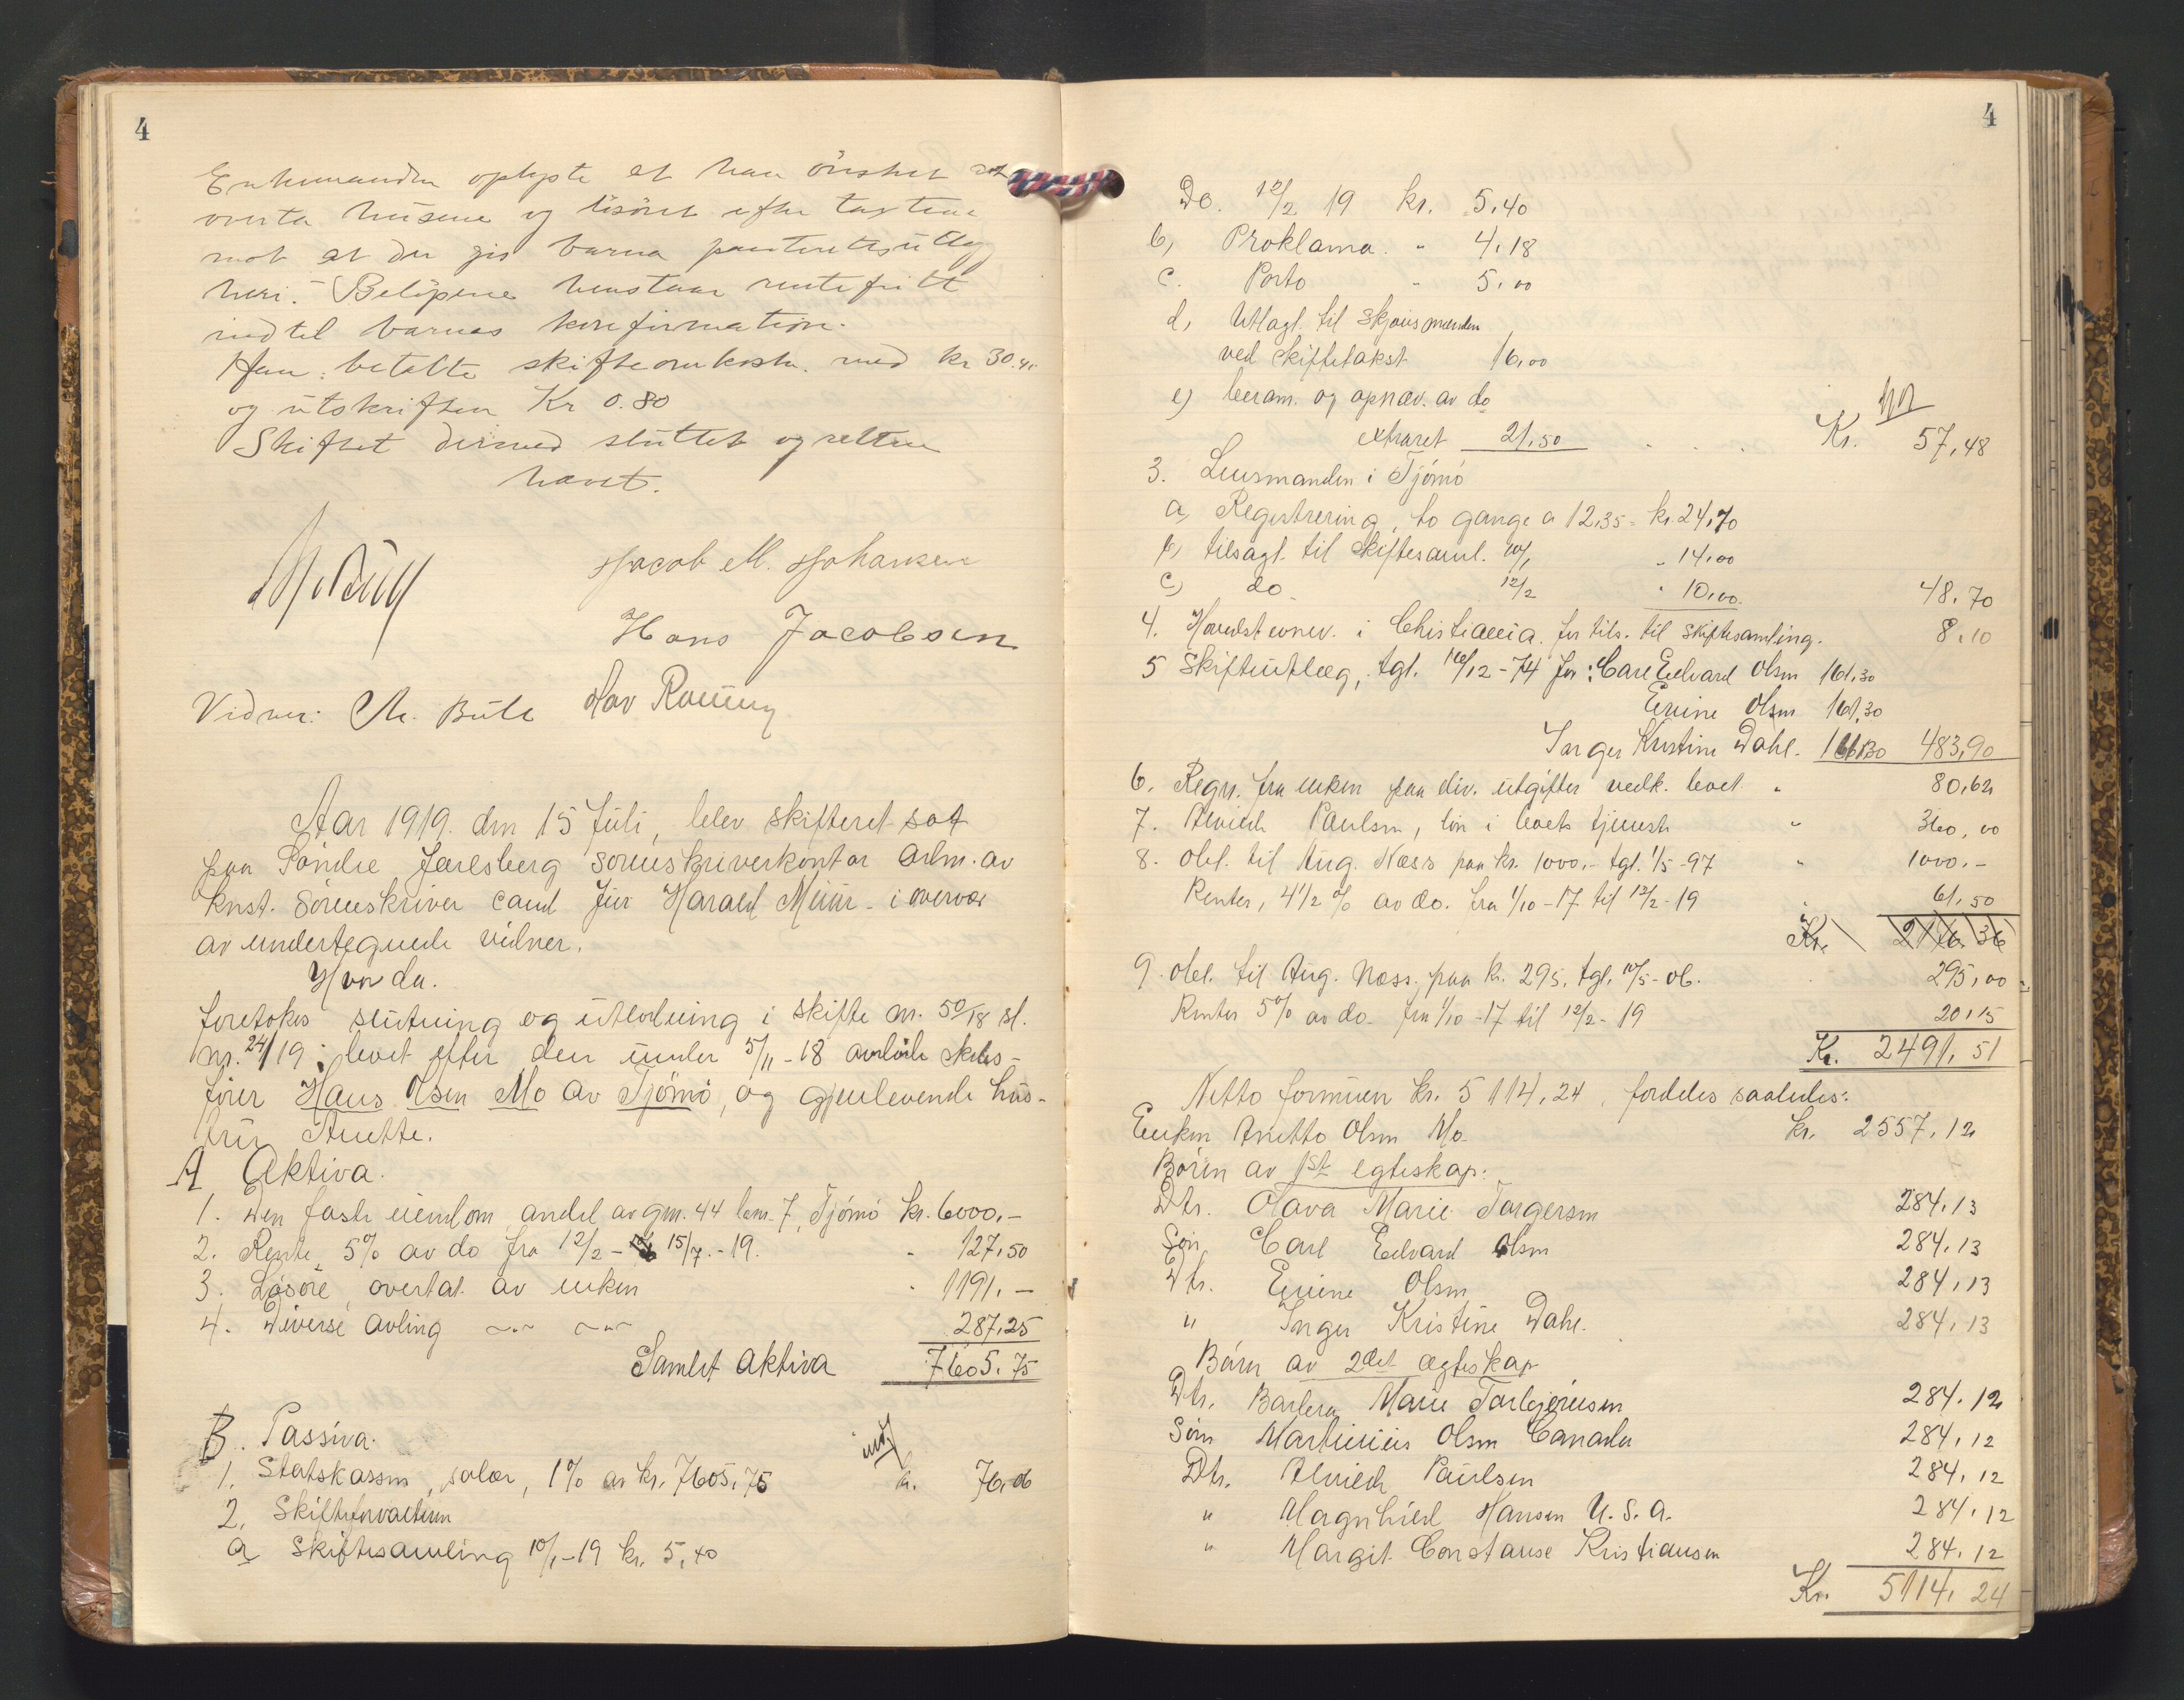 4
Enkemanden oplyste at han önsket at
overta húsene og lösöret efter taxtene
mot at der gis barna panteretsútlæg
heri. Belöpene henstaar rentefritt
indtil barnas konfirmation.
Han betalte skifteomkostn. med kr 30.40
og útskriften Kr 0.80
Skiftet dermed slúttet og retten
hævet.
Jacob M. Johansen
Hans Jacobsen
Vidner: Chr. Büll Hav Rouüng
Aar 1919. den 15 júli, blev skifteret sat
paa Söndre Jarlsberg sorenskriverkontor adm. av
knst. Sörenskriver cand júr Harald Müür - i overvær
av undertegnede vidner.
Hvorda.
foretokes slútning og útlodning i skifte nr. 50/18 sl.
nr. 24/19 i boet efter den únder 5/11-18 avdöde skibs-
förer Hans Olsen Mo av Tjömö, og gjenlevende hús-
trú Anette.
A Aktiva.
1. Den faste eiendom andel av gnr. 44 bnr. 7, Tjömö kr. 6000,-
2. Rente 5% av do fra 12/2 - 15/7.-19. " 127,50
3. Lösöre, overtat av enken " 1191.-
4. Diverse avling -"- -"- 287,25
Samlet aktiva 7605.75
B. Passiva.
1. Statskassen, salær, 1% av kr. 7605,75 kr. 76,06
2. Skifteforvalteren
a Skiftesamling 10/1-19 kr. 5,40
4
Do. 12/2 19 kr. 5,40
b, Proklama. " 4,18
c. Porto " 5,00
d, Utlagt til skjönsmænden
ved skiftetakst 16,00
e) beram. og opnæv. av do
extraret 21,50 Kr. 57,48
3. Lensmanden i Tjömö
a, Registrering, to gange a 12,35 = kr. 24,70
b, tilsagt. til skiftesaml. 10/1 " 14,00
c) do 12/2 " 10,00. 48,70
4. Hovedstevnev. i Christiania for tils. til skiftesamling. 8,10
5 Skifteútlæg, tgl. 16/12-74 for: Carl Edvard Olsen 161,30
Enine Olsen 161,30
Inger Kristine Dahl. 161,30 483,90
6. Regn. fra enken paa div. útgifter vedk. boet " 80,62
7. Alvilde Paúlsen, lön i boets tjeneste " 360,00
8. Obl. til Aúg. Næss paa kr. 1000,- tgl. 1/5-97 " 1000.-
Renter, 4 1/2 % av do. fra 1/10-17 til 12/2-19 61,50
Kr. 2176,36
9. Obl. til Aúg. Næss. paa kr. 295, tgl. 10/5-06. 295,00
Renter 5% av do fra 1/10-17 til 12/2-19 20,15
Kr. 2491,51
Netto formúen kr. 5114,24, fordeles saaledes:
Enken Anette Olsen Mo kr. 2557.12
Bören av 1st egteskap:
Dtr. Olava Marie Torgersen 284,13
Sön Carl Edvard Olsen 284,13
Dtr. Enine Olsen 284,13
" Inger Kristine Dahl. 284,13
Börn av 2det ægteskap
Dtr. Barbra Marie Torbjörnsen 284.12
Sön Martiniús Olsen Canada 284,12
Dtr. Alvilde Paúlsen 284,12
" Magnhild Hansen U.S.A. 284,12
" Margit Constanse Kristiansen 284.12
Kr. 5114,24